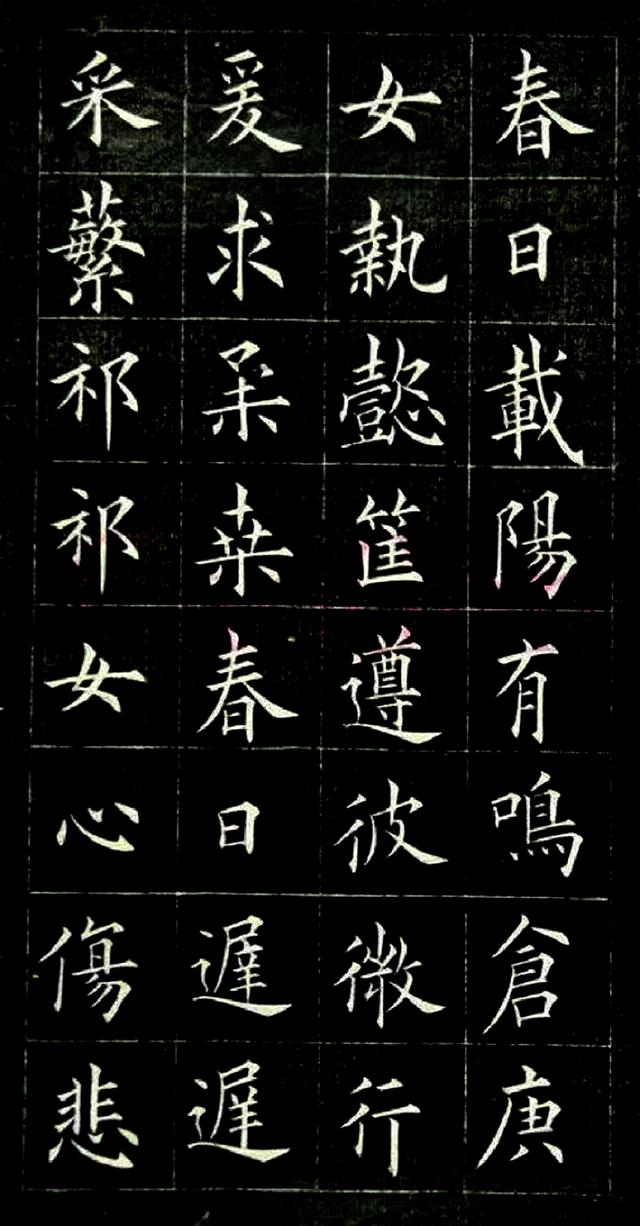 春日載陽有鳴倉庚
女執懿筐遵彼微行
爰求柔桑春日遲遲
采蘩祁祁女心傷悲